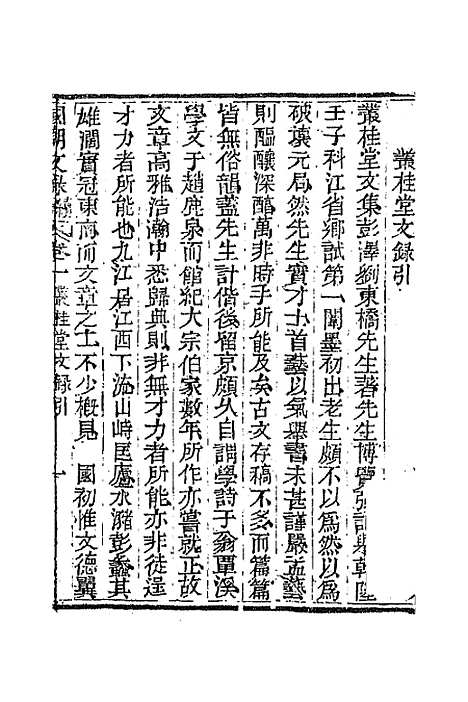 叢桂堂文錄引
叢桂堂文集彭澤劉東橋先生著先生博覽強記舉乾隆
壬子科江省鄉試第一闈墨初出老生頗不以為然以為
破壞元局然先生實才士首藝以氣舉書未甚謹嚴孟藝
則醞釀深醇萬非時手所能及矣古文存稿不多而篇篇
皆無俗韻蓋先生計偕後留京頗久自謂學詩于翁覃溪
學文于趙鹿泉而館紀大宗伯家數年所作亦嘗就正故
文章高雅浩瀚中悉歸典則非無才力者所能亦非徒逞
才力者所能也九江居江西下流山峙匡廬水瀦彭蠡其
雄濶實冠東南而文章之士不少概見　國初惟文德翼
國朝文錄續編卷一　叢桂堂文錄引　一